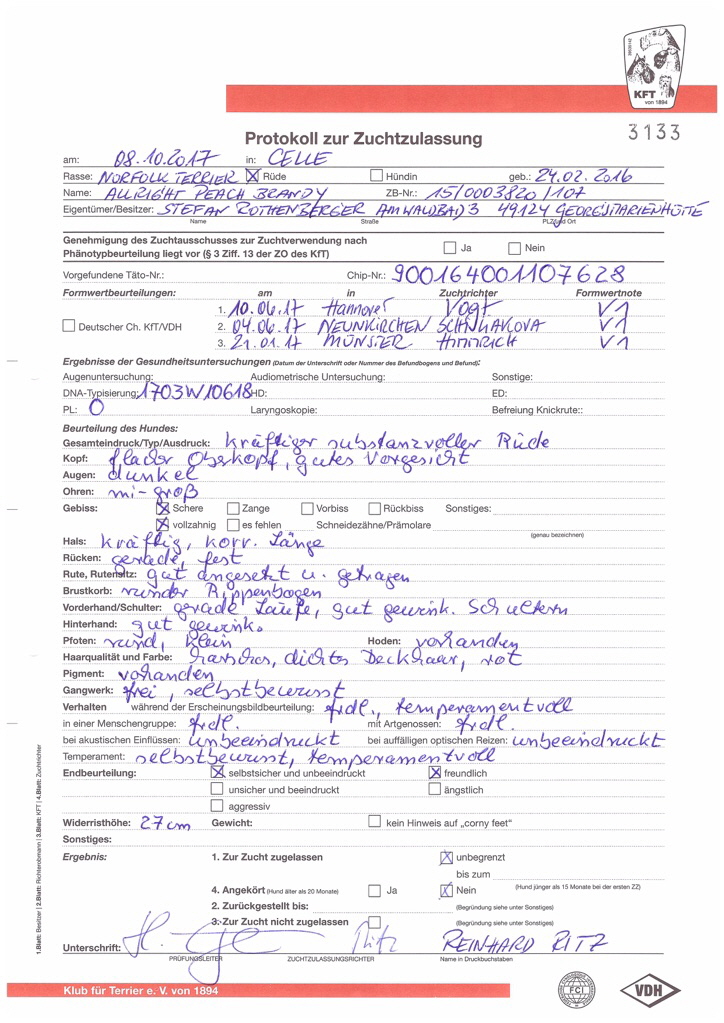 KFT
von 1894
Protokoll zur Zuchtzulassung
3133
am: 08.10.2017 in: CELLE
Rasse: NORFOLK TERRIER Rüde Hündin geb.: 24.02.2016
Name: ALLRIGHT PEACH BRANDY ZB-Nr.: 15/0003820/107
Eigentümer/Besitzer: STEFAN ROTHENBERGER AM WALDBAD 3 49124 GEORGSMARIENHÜTTE
Name Straße PLZ und Ort
Genehmigung des Zuchtausschusses zur Zuchtverwendung nach
Phänotypbeurteilung liegt vor (§ 3 Ziff. 13 der ZO des KfT) Ja Nein
Vorgefundene Täto-Nr.: Chip-Nr.: 900164001107628
Formwertbeurteilungen: am in Zuchtrichter Formwertnote
1. 10.06.17 Hannover Vogt V1
Deutscher Ch. KfT/VDH 2. 04.06.17 NEUNKIRCHEN V1
3. 21.01.17 MÜNSTER V1
Ergebnisse der Gesundheitsuntersuchungen (Datum der Unterschrift oder Nummer des Befundbogens und Befund):
Augenuntersuchung: Audiometrische Untersuchung: Sonstige:
DNA-Typisierung: 1703W10618 HD: ED:
PL: 0 Laryngoskopie: Befreiung Knickrute::
Beurteilung des Hundes:
Gesamteindruck/Typ/Ausdruck: kräftiger substanzvoller Rüde
Kopf: flacher Oberkopf, gutes Vorgesicht
Augen: dunkel
Ohren: mi-groß
Gebiss: Schere Zange Vorbiss Rückbiss Sonstiges:
vollzahnig es fehlen Schneidezähne/Prämolare (genau bezeichnen)
Hals: kräftig, korr. Länge
Rücken: gerade, fest
Rute, Rutensitz: gut angesetzt u. getragen
Brustkorb: runder Rippenbogen
Vorderhand/Schulter: gerade Läufe, gut gewink. Schultern
Hinterhand: gut gewink.
Pfoten: rund, klein Hoden: vorhanden
Haarqualität und Farbe: harsches, dichtes Deckhaar, rot
Pigment: vorhanden
Gangwerk: frei, selbstbewusst
Verhalten während der Erscheinungsbildbeurteilung: frdl., temperamentvoll
in einer Menschengruppe: frdl. mit Artgenossen: frdl.
bei akustischen Einflüssen: unbeeindruckt bei auffälligen optischen Reizen: unbeeindruckt
Temperament: selbstbewusst, temperamentvoll
Endbeurteilung: selbstsicher und unbeeindruckt freundlich
unsicher und beeindruckt ängstlich
aggressiv
Widerristhöhe: 27 cm Gewicht: kein Hinweis auf „corny feet"
Sonstiges:
Ergebnis: 1. Zur Zucht zugelassen unbegrenzt
bis zum
4. Angekört (Hund älter als 20 Monate) Ja Nein (Hund jünger als 15 Monate bei der ersten ZZ)
2. Zurückgestellt bis: (Begründung siehe unter Sonstiges)
3. Zur Zucht nicht zugelassen (Begründung siehe unter Sonstiges)
Unterschrift: Ritz REINHARD RITZ
PRÜFUNGSLEITER ZUCHTZULASSUNGSRICHTER Name in Druckbuchstaben
1.Blatt: Besitzer | 2.Blatt: Richterobmann | 3.Blatt: KFT | 4.Blatt: Zuchtrichter
Klub für Terrier e. V. von 1894
FCI
VDH